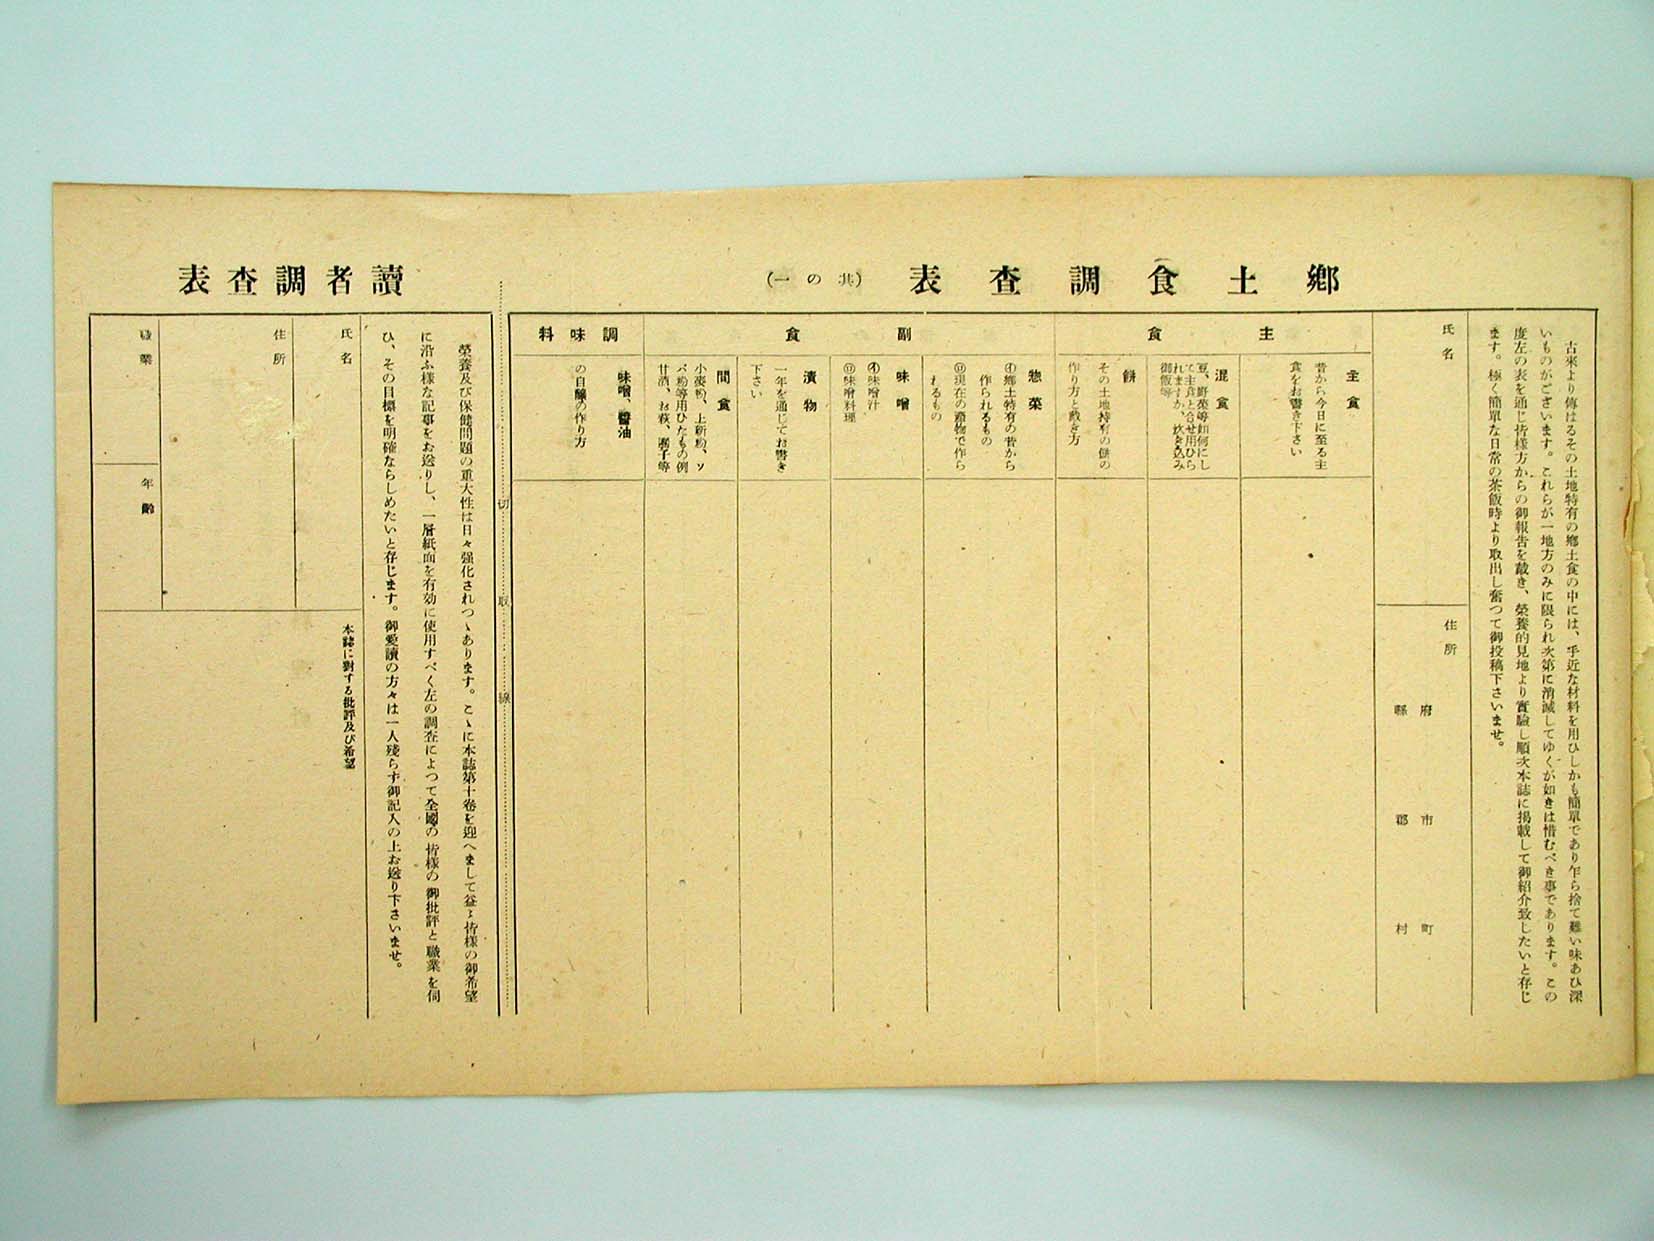 鄕土食調査表
(其の一)
古來より傳はるその土地特有の鄕土食の中には、手近な材料を用ひしかも簡單であり乍ら捨て難い味あひ深
いものがございます。これらが一地方のみに限られ次第に消滅してゆくが如きは惜むべき事であります。この
度左の表を通じ皆樣方からの御報告を戴き、榮養的見地より實驗し順次本誌に揭載して御紹介致したいと存じ
ます。極く簡單な日常の茶飯時より取出し奮つて御投稿下さいませ。
氏名
住所
府 市 町
縣 郡 村
主食
主食
昔から今日に至る主
食をお書き下さい
混食
豆、野菜等如何にし
て主食と合せ用ひら
れますか、炊き込み
御飯等
餅
その土地特有の餅の
作り方と戴き方
副食
惣菜
㋑鄕土特有の昔から
作られるもの
㋺現在の產物で作ら
れるもの
味噌
㋑味噌汁
㋺味噌料理
漬物
一年を通じてお書き
下さい
間食
小麥粉、上新粉、ソ
バ粉等用ひたもの例
甘酒、お萩、團子等
調味料
味噌、醬油
の自釀の作り方
切取線
讀者調査表
榮養及び保健問題の重大性は日々强化されつゝあります。こゝに本誌第十卷を迎へまして益〻皆樣の御希望
に沿ふ樣な記事をお送りし、一層紙面を有効に使用すべく左の調査によつて全國の皆樣の御批評と職業を伺
ひ、その目標を明確ならしめたいと存じます。御愛讀の方々は一人殘らず御記入の上お送り下さいませ。
氏名
住所
職業
年齡
本誌に對する批評及び希望